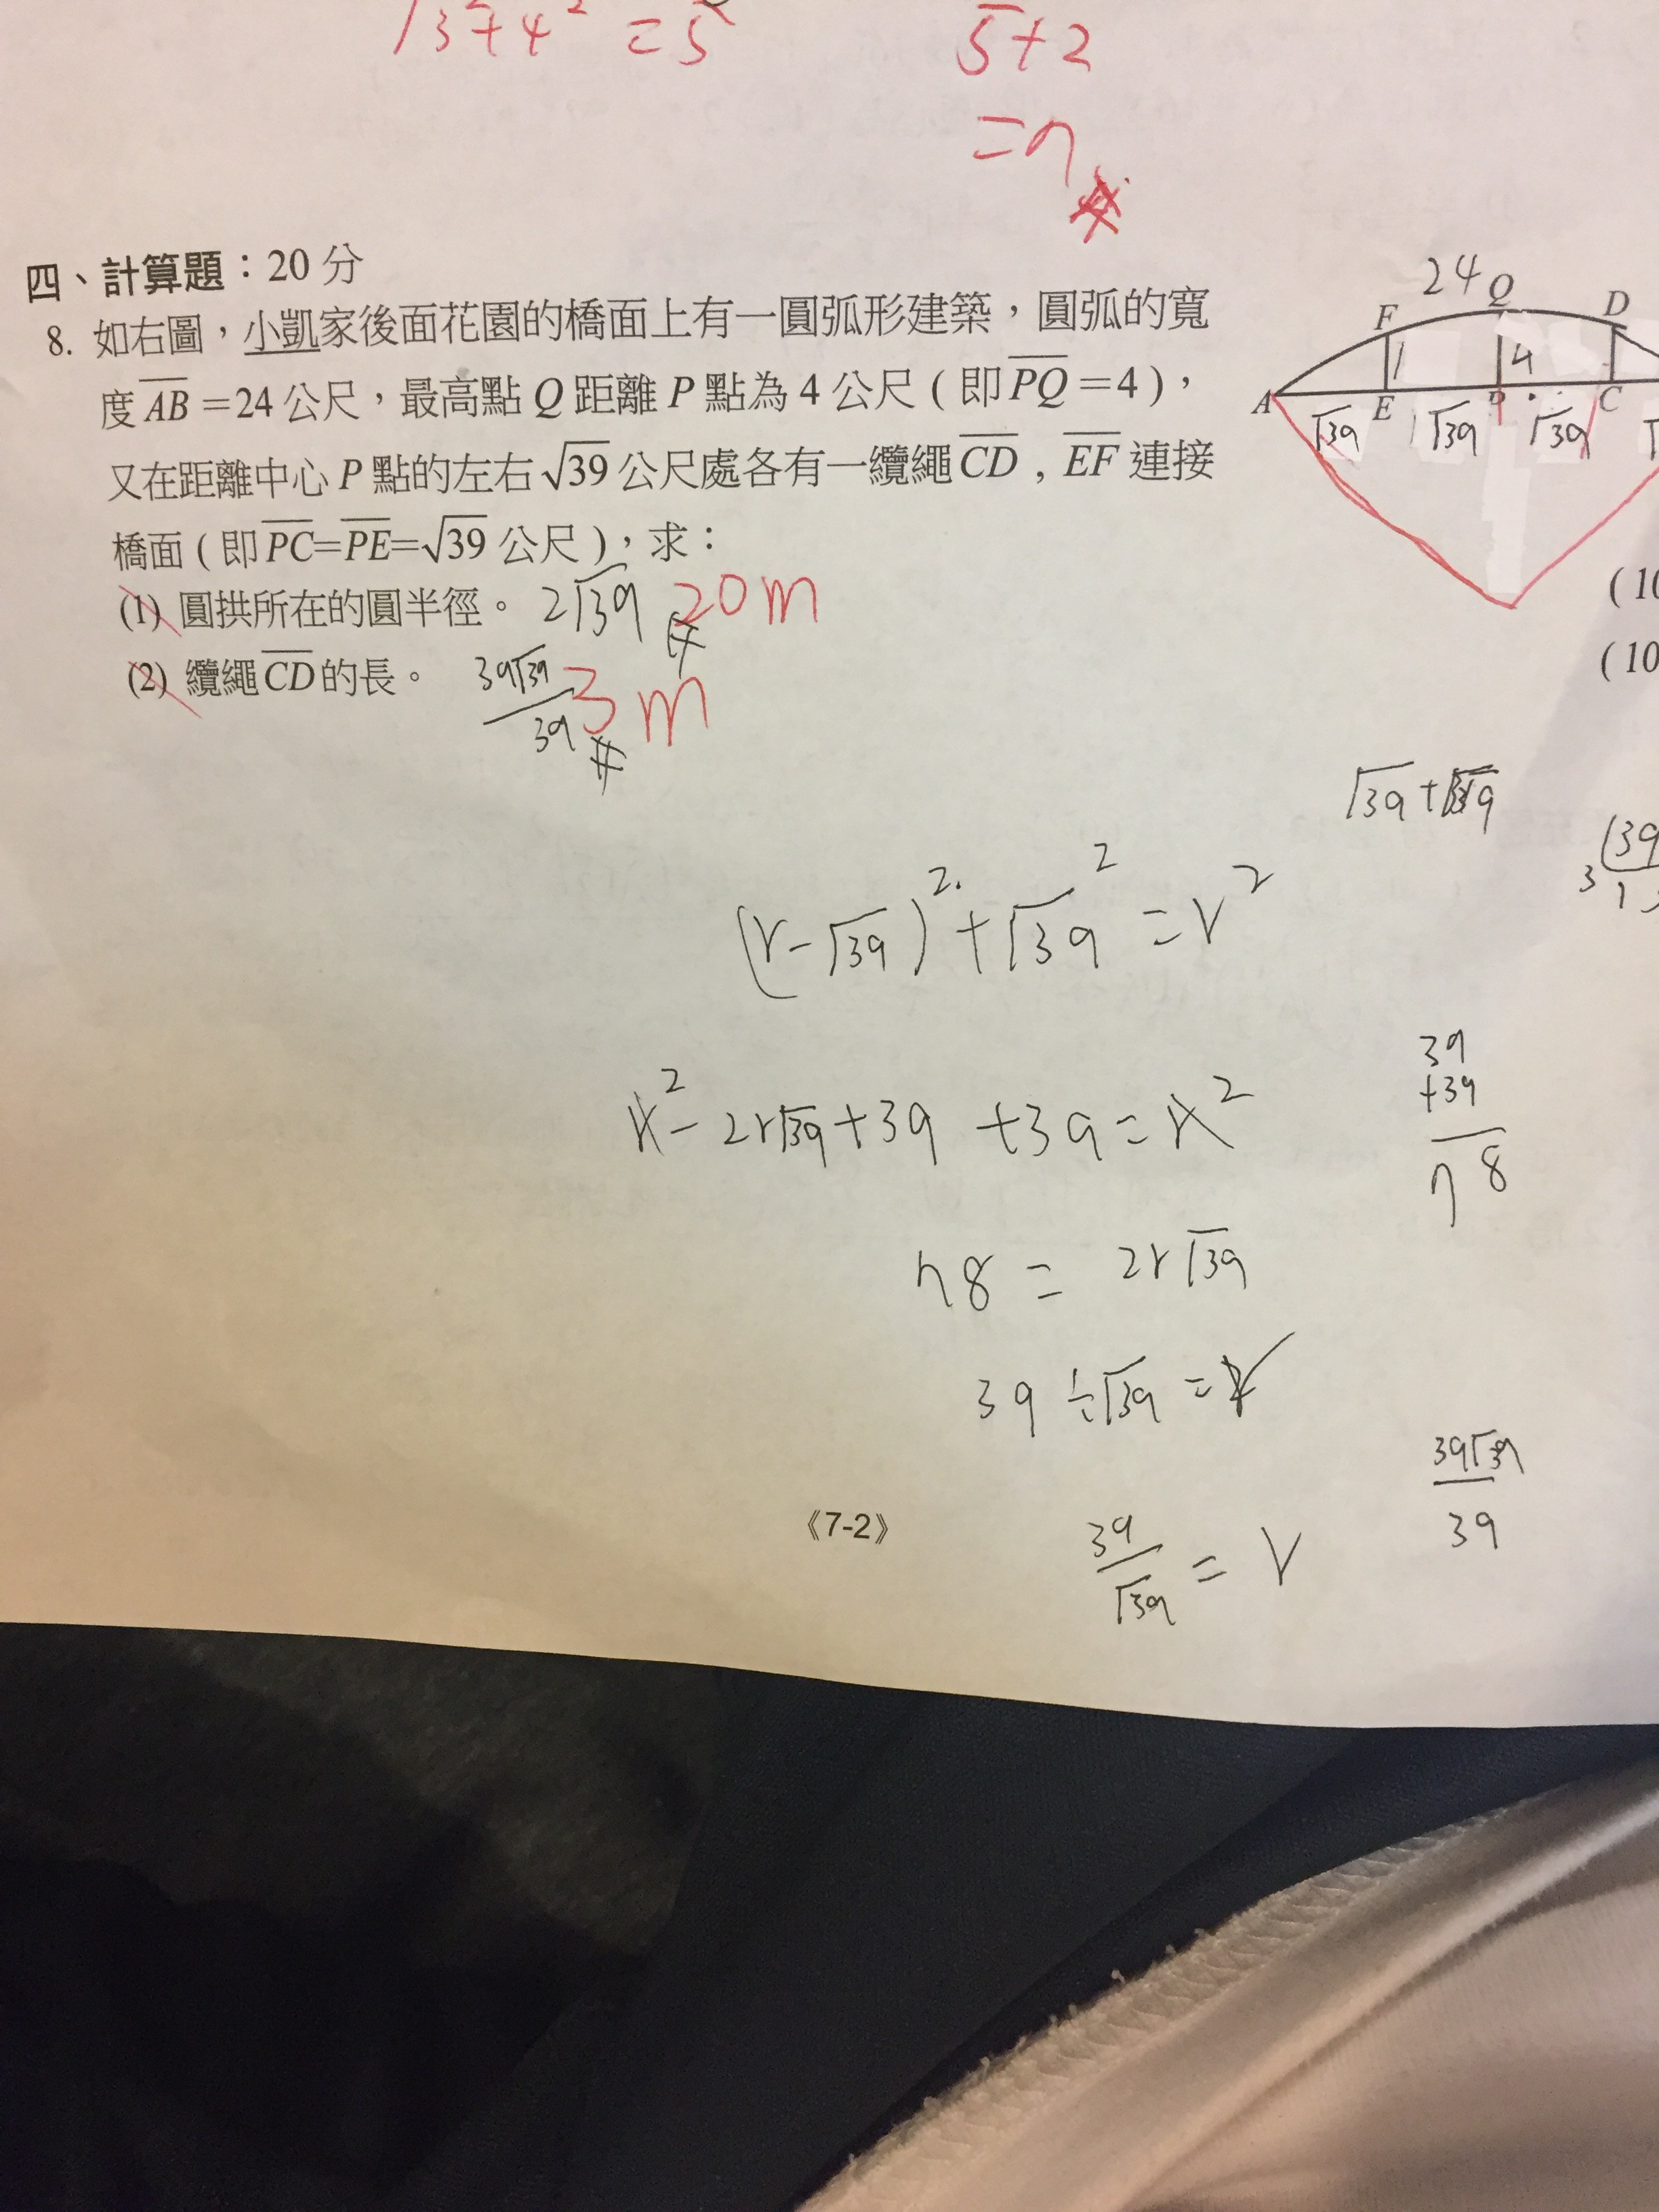 √3²+4² = 5
5+2
=7
四、計算題：20 分
8. 如右圖，小凱家後面花園的橋面上有一圓弧形建築，圓弧的寬
度 AB =24 公尺，最高點 Q 距離 P 點為 4 公尺 ( 即 PQ =4 )，
又在距離中心 P 點的左右 √39 公尺處各有一纜繩 CD , EF 連接
橋面 ( 即 PC=PE=√39 公尺 )，求：
(1) 圓拱所在的圓半徑。 2√39 20m
(2) 纜繩 CD 的長。 39√39/39 3m
24
F Q D
4
A E P C
√39 √39 √39
(10
(10
√39+√39
(r-√39)²+√39² =r²
r²- 2r√39+39 +39=r²
39
+39
78
78 = 2r√39
39 ÷√39 =r
39√39
39
39/√39 = r
《7-2》